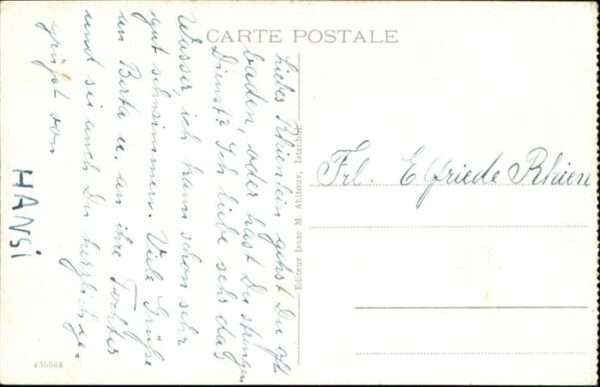 CARTE POSTALE
Liebes Rhienlein gehst Du oft
baden, oder hast Du strengen
Dienst? Ich liebe sehr das
Wasser, ich kann schon sehr
gut schwimmen. Viele Grüße
an Berta u. an ihre Tochter
und sei auch Du herzlich ge-
grüßt von
HANSi
Editeur Isaac M. Ahitouv, Istanbul
Frl. Elfriede Rhien